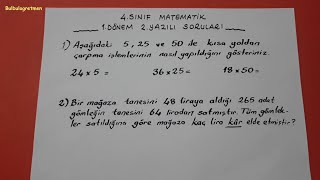 Bulbulogretmen
4. SINIF MATEMATİK
1. DÖNEM 2. YAZILI SORULARI
1) Aşağıdaki 5, 25 ve 50 ile kısa yoldan
çarpma işlemlerinin nasıl yapıldığını gösteriniz.
24 x 5 = 36 x 25 = 18 x 50 =
2) Bir mağaza tanesini 48 liraya aldığı 265 adet
gömleğin tanesini 64 liradan satmıştır. Tüm gömlek-
ler satıldığına göre mağaza kaç lira kâr elde etmiştir?